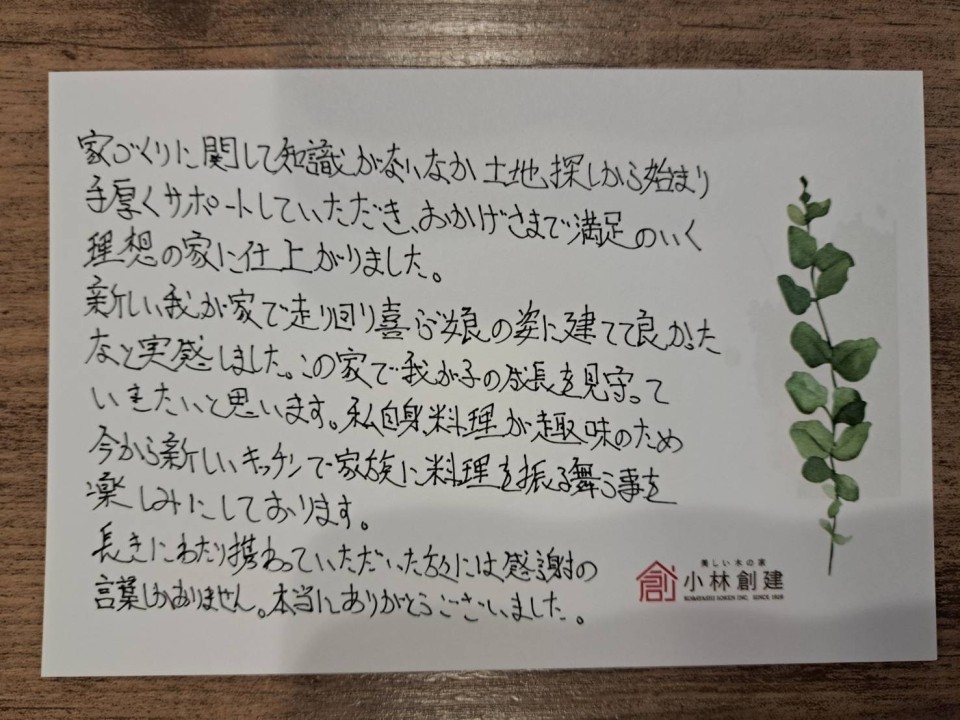 家づくりに関して知識がないなか土地探しから始まり
手厚くサポートしていただき、おかげさまで満足のいく
理想の家に仕上がりました。
新しい我が家で走り回り喜ぶ娘の姿に建てて良かった
なと実感しました。この家で我が子の成長を見守って
いきたいと思います。私自身、料理が趣味のため
今から新しいキッチンで家族に料理を振る舞う事を
楽しみにしております。
長きにわたり携わっていただいた方々には感謝の
言葉しかありません。本当にありがとうございました。
美しい木の家
小林創建